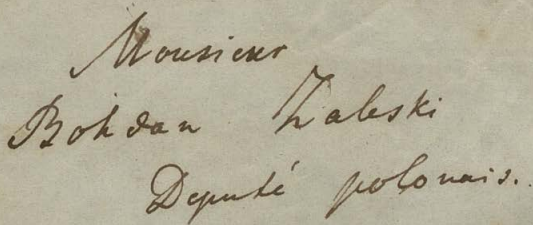 Monsieur
Bohdan Zaleski
Deputé polonais.